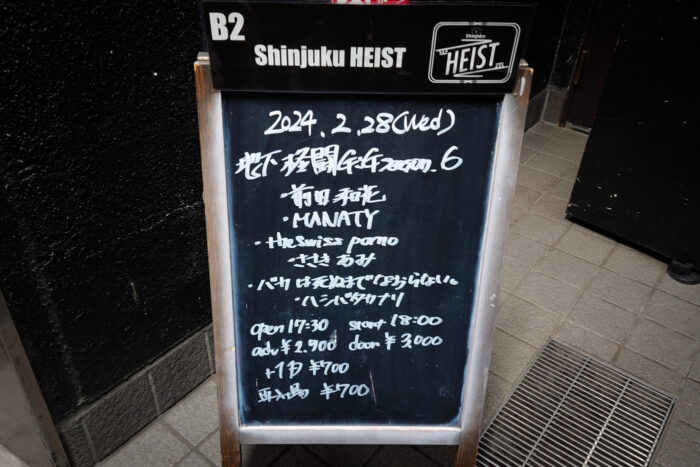 B2
Shinjuku HEIST
Shinjuku
HEIST
2024.2.28(Wed)
地下格闘GiG season.6
・前田和花
・MANATY
・the swiss porno
・ささき あみ
・バカは死ぬまでなおらない。
・ハシバタカナリ
open 17:30 start 18:00
adv ¥2,900 door ¥3,000
+1D ¥700
再入場 ¥700